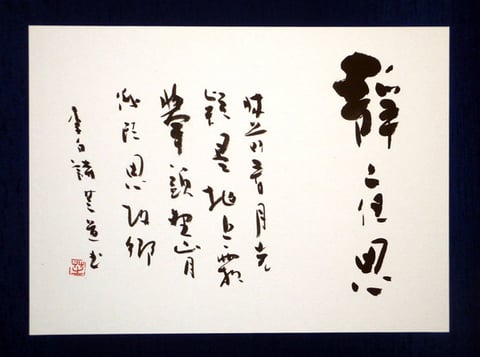 靜夜思
牀前看月光
疑是地上霜
擧頭望山月
低頭思故郷
李白詩 書